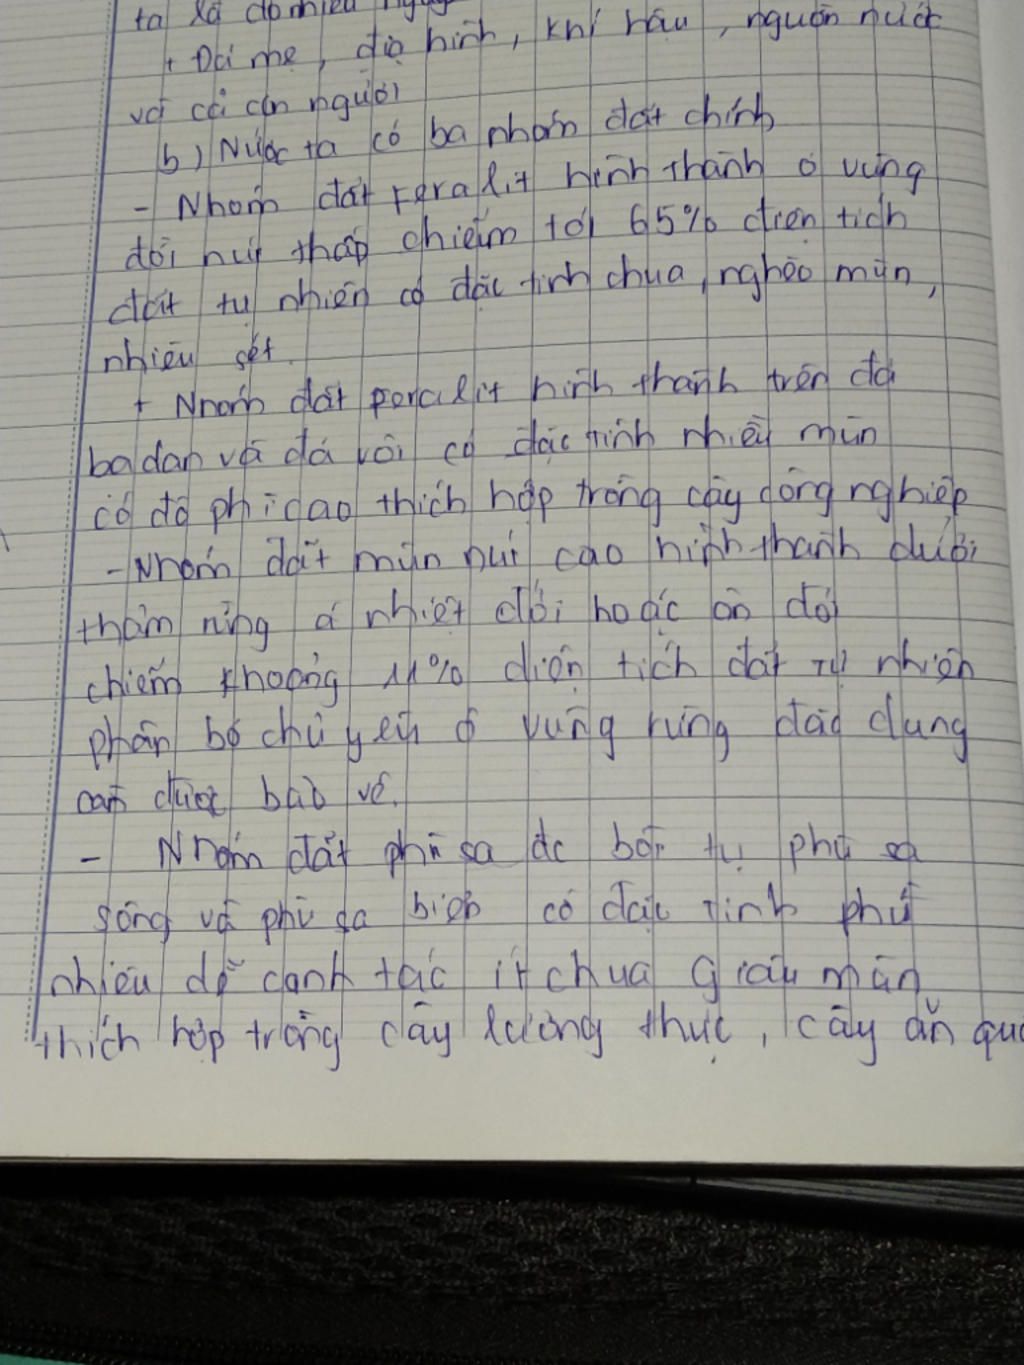 ta là do nhiều
+ Đá mẹ, địa hình, khí hậu, nguồn nước
và cả con người
b) Nước ta có ba nhóm đất chính
- Nhóm đất feralit hình thành ở vùng
đồi núi thấp chiếm tới 65% diện tích
đất tự nhiên có đặc tính chua, nghèo mùn,
nhiều sét.
+ Nhóm đất peralit hình thành trên đá
badan và đá vôi có đặc tính nhiều mùn
có độ phì cao thích hợp trồng cây công nghiệp
- Nhóm đất mùn núi cao hình thành dưới
thảm rừng á nhiệt đới hoặc ôn đới
chiếm khoảng 11% diện tích đất tự nhiên
phân bố chủ yếu ở vùng rừng đầu dung
cần được bảo vệ.
- Nhóm đất phù sa đc bồi tụ phù sa
sông và phù sa biển có đặc tính phù
nhiêu dễ canh tác ít chua giàu mùn
thích hợp trồng cây lương thực, cây ăn quả